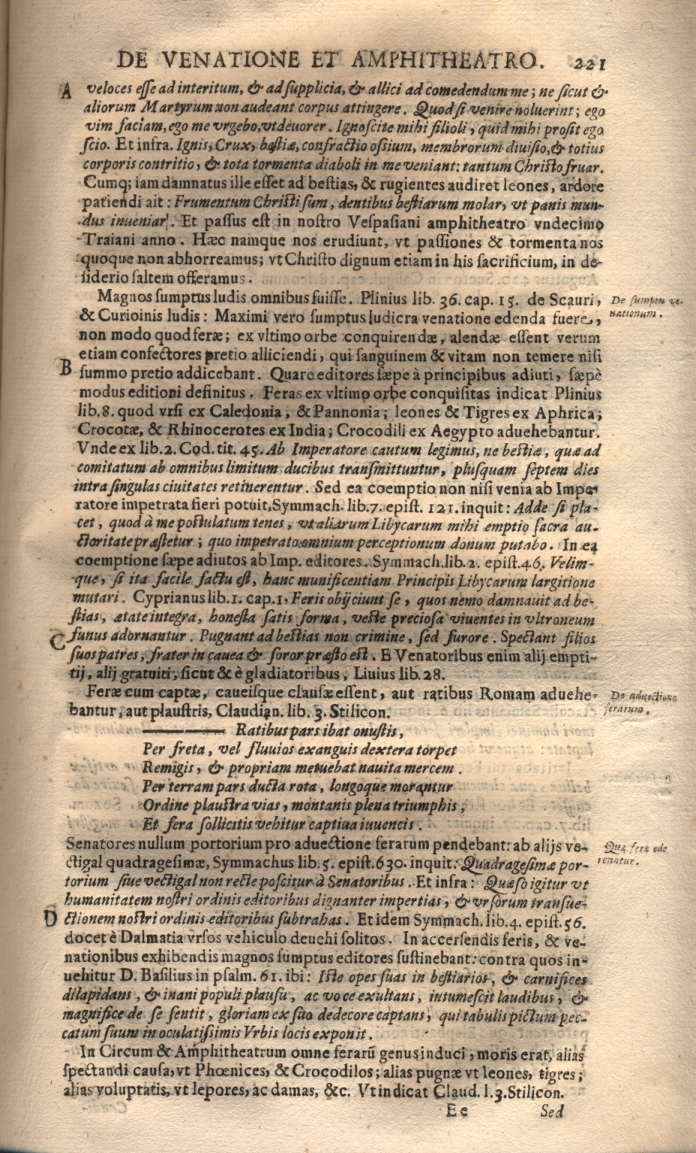 DE VENATIONE ET AMPHITHEATRO. 221
A veloces esse ad interitum, & ad supplicia, & allici ad comedendum me; ne sicut &
aliorum Martyrum non audeant corpus attingere. Quod si venire noluerint; ego
vim faciam, ego me vrgebo, vt deuorer. Ignoscite mihi filioli, quid mihi prosit ego
scio. Et infra. Ignis, Crux, bestiæ, confractio ossium, membrorum diuisio, & totius
corporis contritio, & tota tormenta diaboli in me veniant: tantum Christo fruar.
Cumq; iam damnatus ille esset ad bestias, & rugientes audiret leones, ardore
patiendi ait: Frumentum Christi sum, dentibus bestiarum molar, vt panis mun-
dus inueniar. Et passus est in nostro Vespasiani amphitheatro vndecimo
Traiani anno. Hæc namque nos erudiunt, vt passiones & tormenta nos
quoque non abhorreamus; vt Christo dignum etiam in his sacrificium, in de-
siderio saltem offeramus.
Magnos sumptus ludis omnibus fuisse. Plinius lib. 36. cap. 15. de Scauri,
De sumptu ve-
nationum.
& Curioinis ludis: Maximi vero sumptus ludicra venatione edenda fuere,
non modo quod feræ; ex vltimo orbe conquirendæ, alendæ essent verum
etiam confectores pretio alliciendi, qui sanguinem & vitam non temere nisi
B summo pretio addicebant. Quare editores sæpe à principibus adiuti, sæpè
modus editioni definitus. Feras ex vltimo orbe conquisitas indicat Plinius
lib. 8. quod vrsi ex Caledonia, & Pannonia; leones & Tigres ex Aphrica;
Crocotæ, & Rhinocerotes ex India; Crocodili ex Aegypto aduehebantur.
Vnde ex lib. 2. Cod. tit. 45. Ab Imperatore cautum legimus, ne bestiæ, quæ ad
comitatum ab omnibus limitum ducibus transmittuntur, plusquam septem dies
intra singulas ciuitates retinerentur. Sed ea coemptio non nisi venia ab Impe-
ratore impetrata fieri potuit, Symmach. lib. 7. epist. 121. inquit: Adde si pla-
cet, quod à me postulatum tenes, vt aliarum Libycarum mihi emptio sacra au-
ctoritate præstetur; quo impetrato omnium perceptionum donum putabo. In ea
coemptione sæpe adiutos ab Imp. editores. Symmach. lib. 2. epist. 46. Velim-
que, si ita facile factu est, hanc munificentiam Principis Libycarum largitione
mutari. Cyprianus lib. 1. cap. 1. Feris obijciunt se, quos nemo damnauit ad be-
stias, ætate integra, honesta satis forma, veste preciosa viuentes in vltroneum
C funus adornantur. Pugnant ad bestias non crimine, sed furore. Spectant filios
suos patres, frater in cauea & soror præsto est. E Venatoribus enim alij empti-
tij, alij gratuiti, sicut & è gladiatoribus, Liuius lib. 28.
Feræ cum captæ, caueisque clausæ essent, aut ratibus Romam aduehe-
De aduectione
ferarum.
bantur, aut plaustris, Claudian. lib. 3. Stilicon.
Ratibus pars ibat onustis,
Per freta, vel fluuios exanguis dextera torpet
Remigis, & propriam metuebat nauita mercem.
Per terram pars ducta rota, longoque morantur
Ordine plaustra vias, montanis plena triumphis,
Et fera sollicitis vehitur captiua iuuencis.
Senatores nullum portorium pro aduectione ferarum pendebant: ab alijs ve-
ctigal quadragesimæ, Symmachus lib. 5. epist. 630. inquit: Quadragesimæ por-
torium siue vectigal non recte poscitur à Senatoribus. Et infra: Quæso igitur vt
humanitatem nostri ordinis editoribus dignanter impertias, & vrsorum transue-
D ctionem nostri ordinis editoribus subtrahas. Et idem Symmach. lib. 4. epist. 56.
docet è Dalmatia vrsos vehiculo deuehi solitos. In accersendis feris, & ve-
nationibus exhibendis magnos sumptus editores sustinebant: contra quos in-
uehitur D. Basilius in psalm. 61. ibi: Iste opes suas in bestiarios, & carnifices
dilapidans, & inani populi plausu, ac voce exultans, intumescit laudibus, &
magnifice de se sentit, gloriam ex suo dedecore captans, qui tabulis pictum pec-
catum suum in oculatissimis Vrbis locis exponit.
In Circum & Amphitheatrum omne ferarũ genus induci, moris erat, alias
spectandi causa, vt Phœnices, & Crocodilos; alias pugnæ vt leones, tigres;
alias voluptatis, vt lepores, ac damas, &c. Vt indicat Claud. l. 3. Stilicon.
Ee Sed